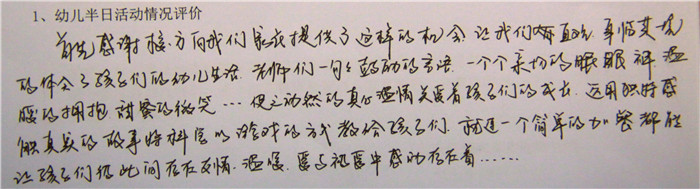 1、幼儿半日活动情况评价
首先感谢接方向我们家长提供了这样的机会 让我们有直接 身临其境
的体会了孩子们的幼儿生活 老师们一句句鼓励的言语 一个个亲切的眼眼神 温
暖的拥抱 甜蜜的微笑… 的真心温情关爱着孩子们的成长 运用独特感
真的故事将科学以游戏的方式教给孩子们 就连一个简单的加餐都能
让孩子们彼此间存在友情 温馨 感动存在着……